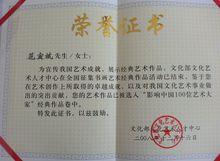 荣誉证书
先生/女士:
为宣传我国艺术成就,展示经典艺术作品,文化部文化
艺术人才中心在全国征集书画艺术经典作品活动已结束。鉴于
您在艺术创作上所取得的卓越成就,以及对我国文化艺术事业做
出的突出贡献,您的艺术作品已被选入“影响中国100位艺术人
家”经典作品卷中。
特发此证书,以兹鼓励。
文化部文化艺术人才中心